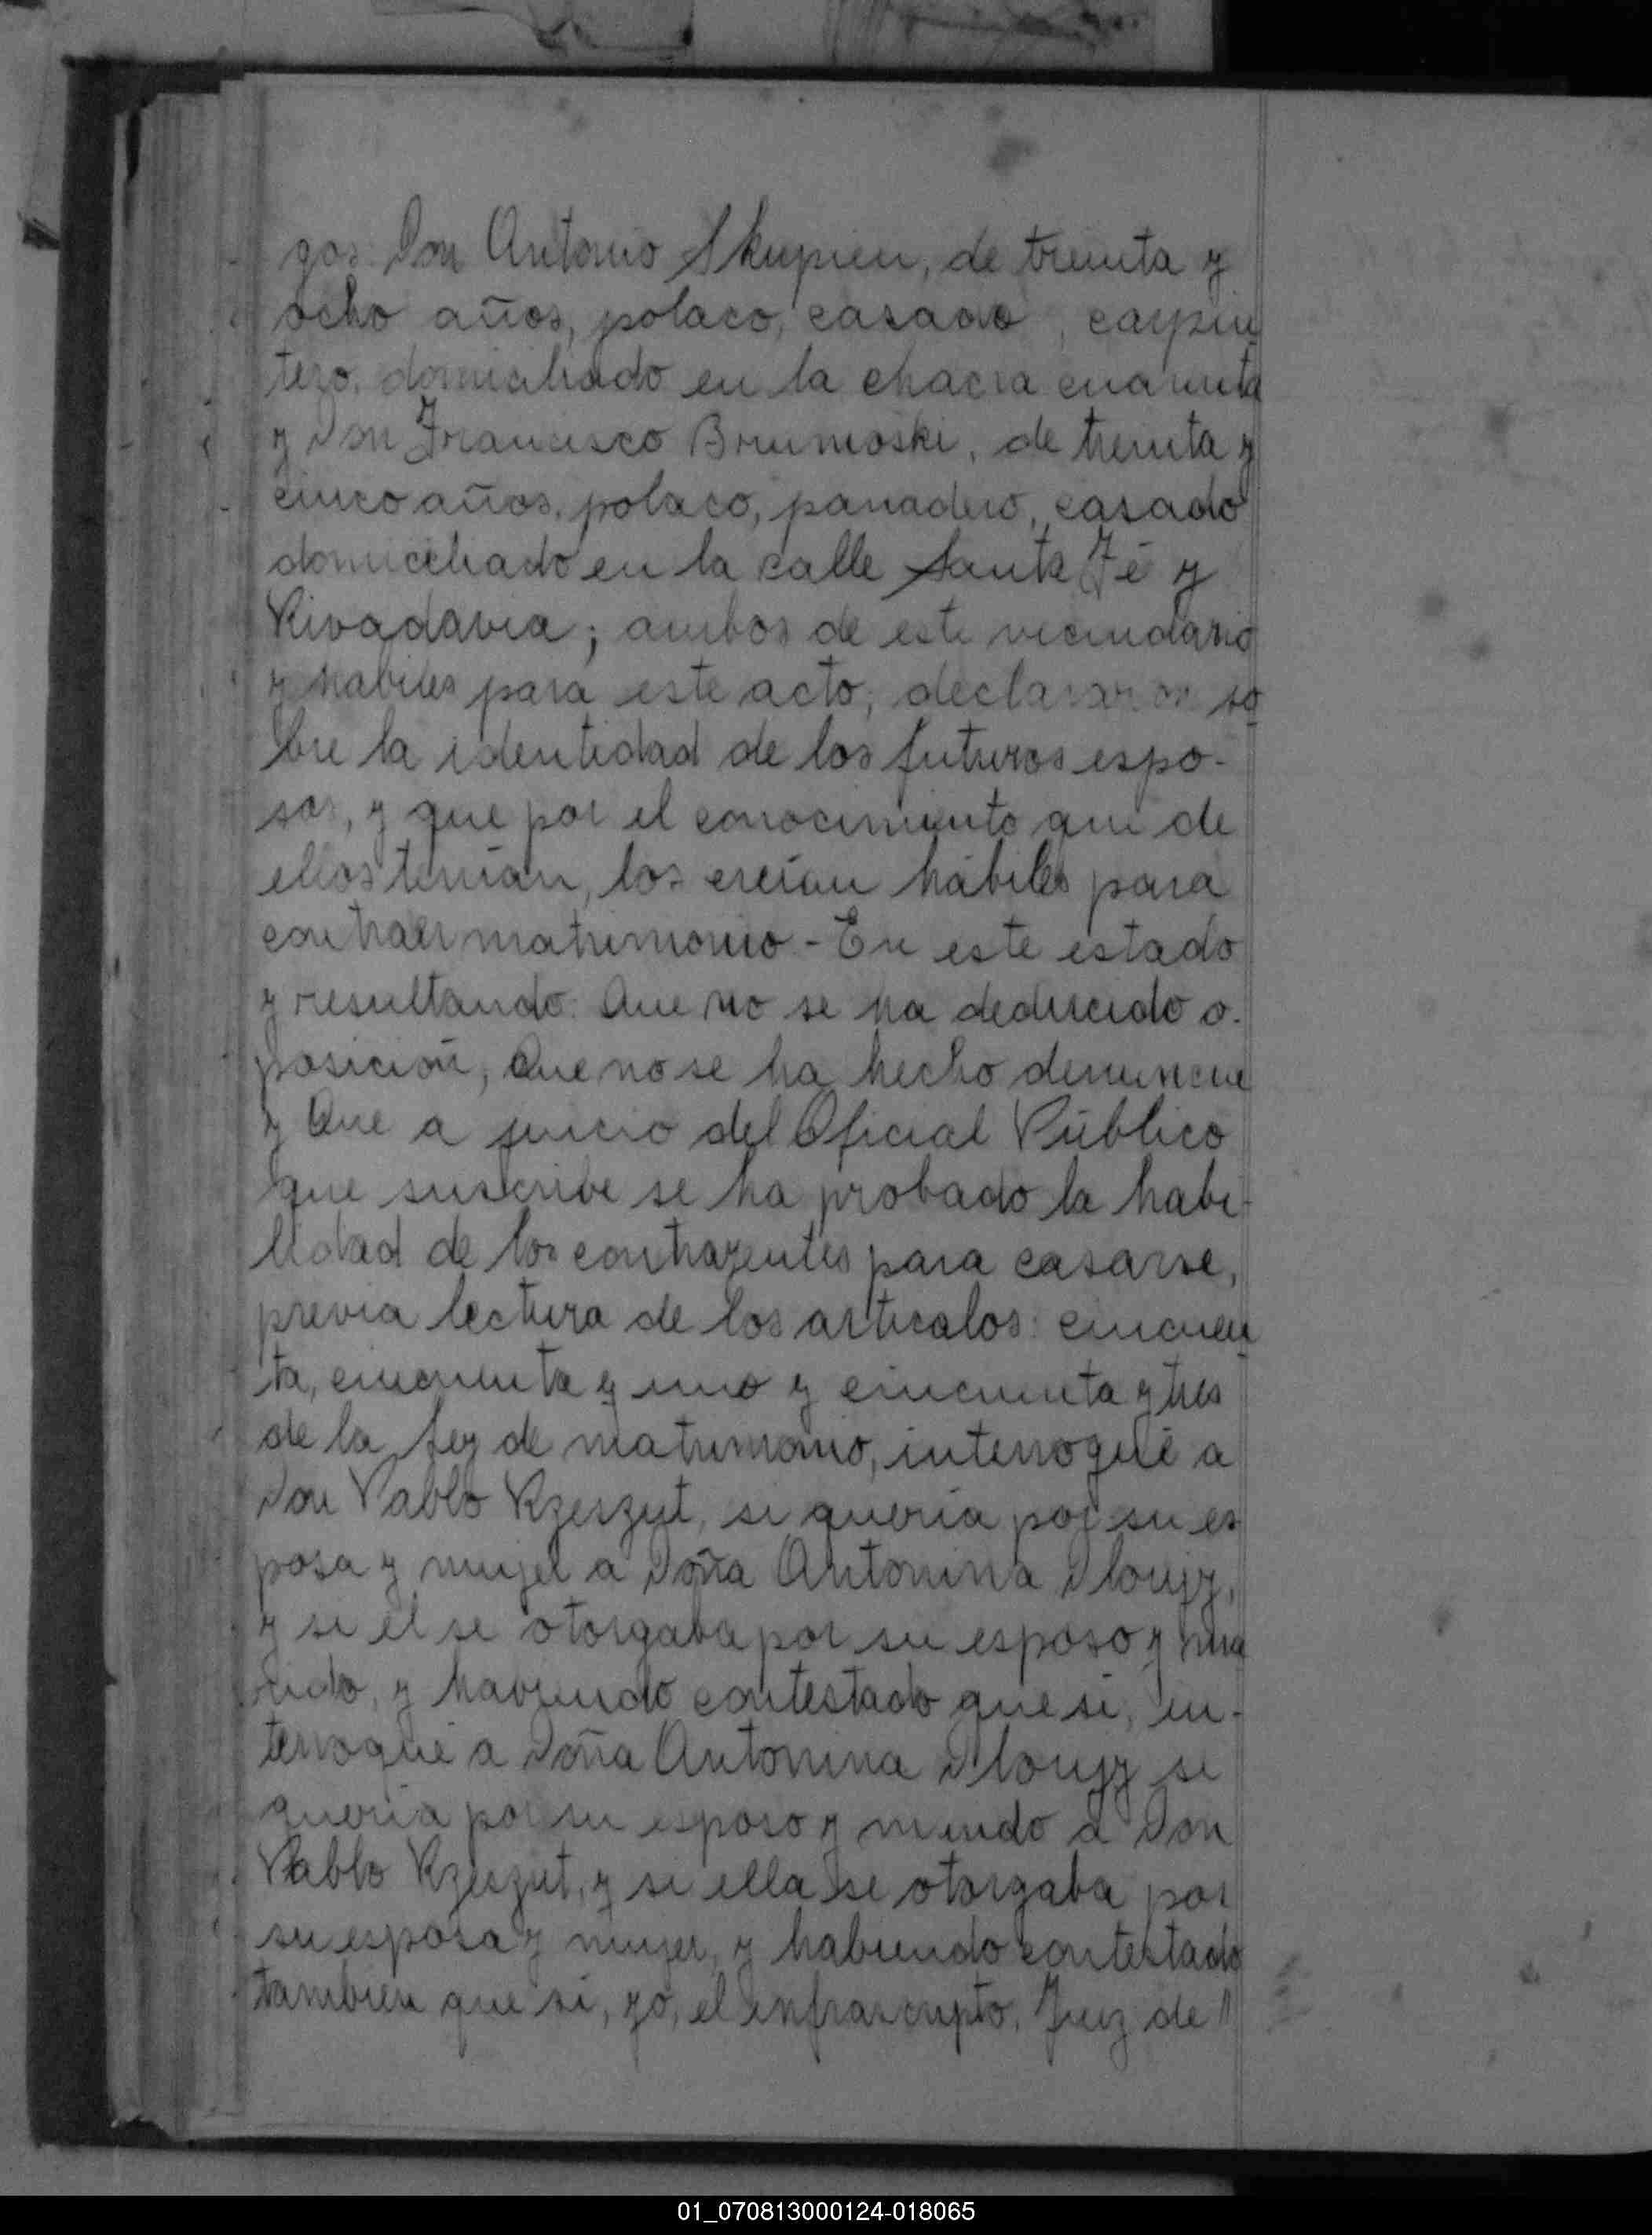 gos Don Antonio Skupien, de treinta y
ocho años, polaco, casado, carpin
tero, domiciliado en la chacra cuarenta
y Don Francisco Brumoski, de treinta y
cinco años, polaco, panadero, casado
domiciliado en la calle Santa Fé y
Rivadavia; ambos de este vecindario
y habiles para este acto, declararon so
bre la identidad de los futuros espo-
sos, y que por el conocimiento que de
ellos tenían, los creían hábiles para
contraer matrimonio - En este estado
y resultando: Que no se ha deducido o-
posición, Que no se ha hecho denuncia
y Que a juicio del Oficial Público
que suscribe se ha probado la habi-
lidad de los contrayentes para casarse,
previa lectura de los articulos: cincuen
ta, cincuenta y uno y cincuenta y tres
de la Ley de matrimonio, interrogué a
Don Pablo Rzeszut, si quería por su es
posa y mujer a Doña Antonina Dlougy,
y si él se otorgaba por su esposo y ma
rido, y habiendo contestado que si, in-
terrogué a Doña Antonina Dlougy si
quería por su esposo y marido a Don
Pablo Rzeszut, y si ella se otorgaba por
su esposa y mujer, y habiendo contestado
tambien que si, yo, el infrascripto, Juez de //
01_070813000124-018065